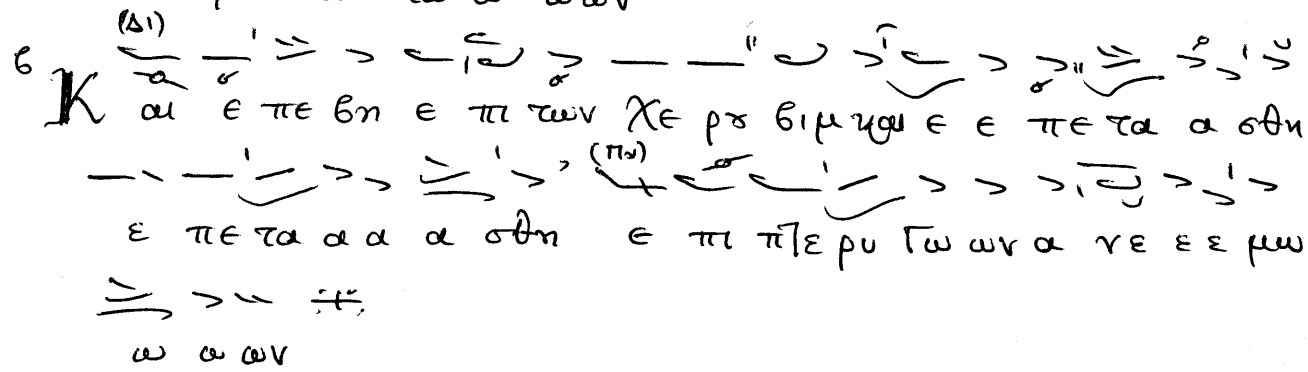 (Δι)
β Και ε πε βη ε πι των Χε ρου βιμ και ε ε πε τα α σθη
(Πν)
ε πε τα α α α σθη ε πι πτε ρυ γω ων α νε ε ε μω
ω ω ων